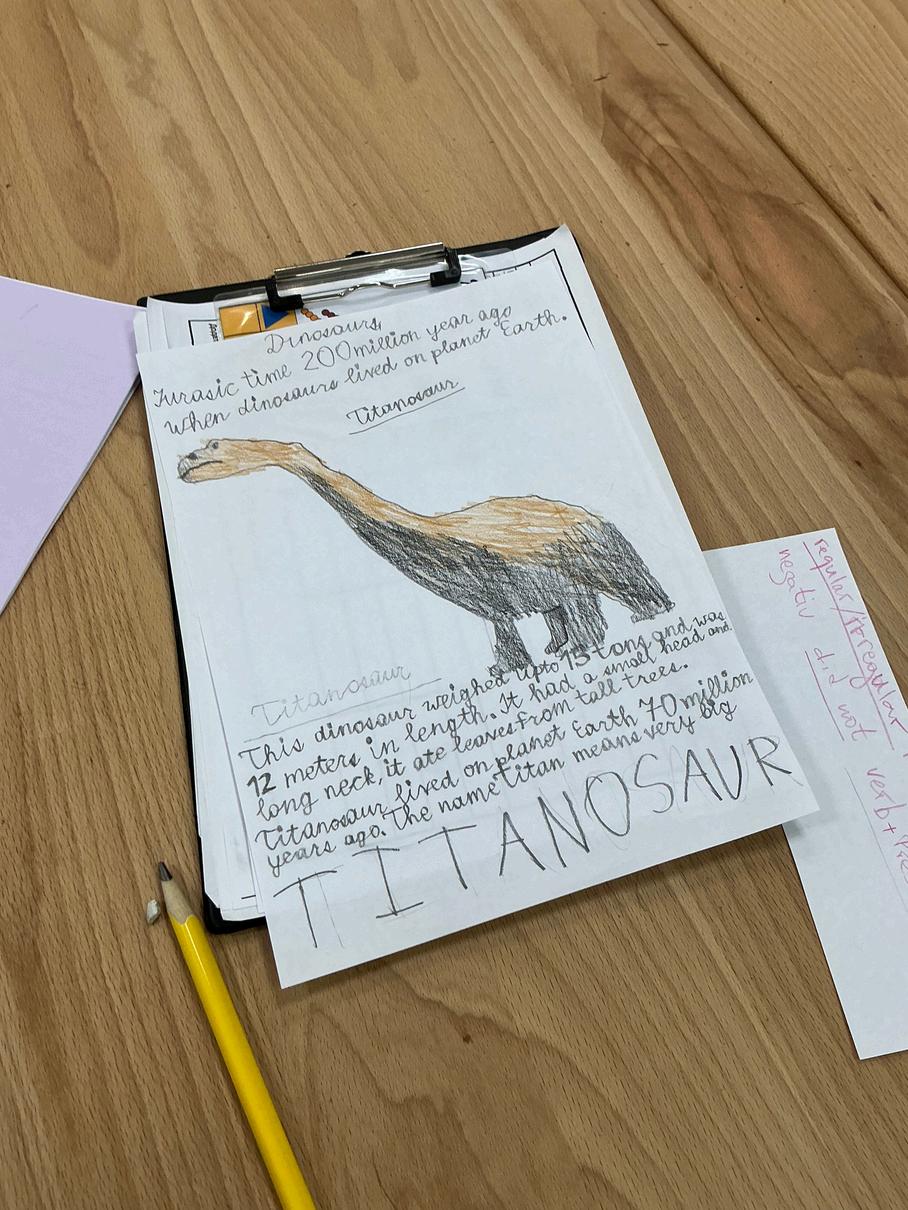 Dinosaurs
Jurasic time 200million year ago
when dinosaurs lived on planet Earth.
Titanosaur
Titanosaur
This dinosaur weighed upto 15 tons and was
12 meters in length. It had a small head and
long neck, it ate leaves from tall trees.
Titanosaur lived on planet Earth 70 million
years ago. The name titan means very big
TITANOSAUR
regular/irregular
negativ did not verb+